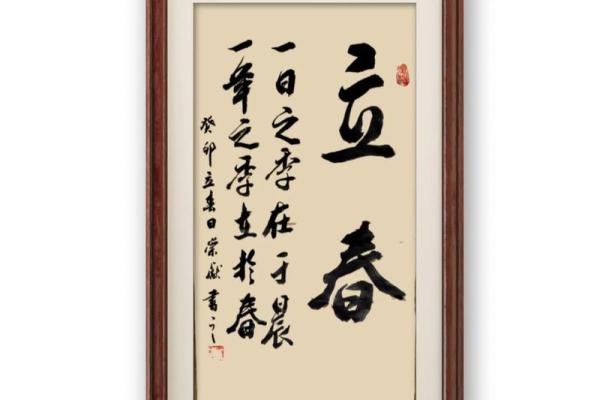 立春
一日之季在于晨
一年之季在於春
癸卯立春日 書之